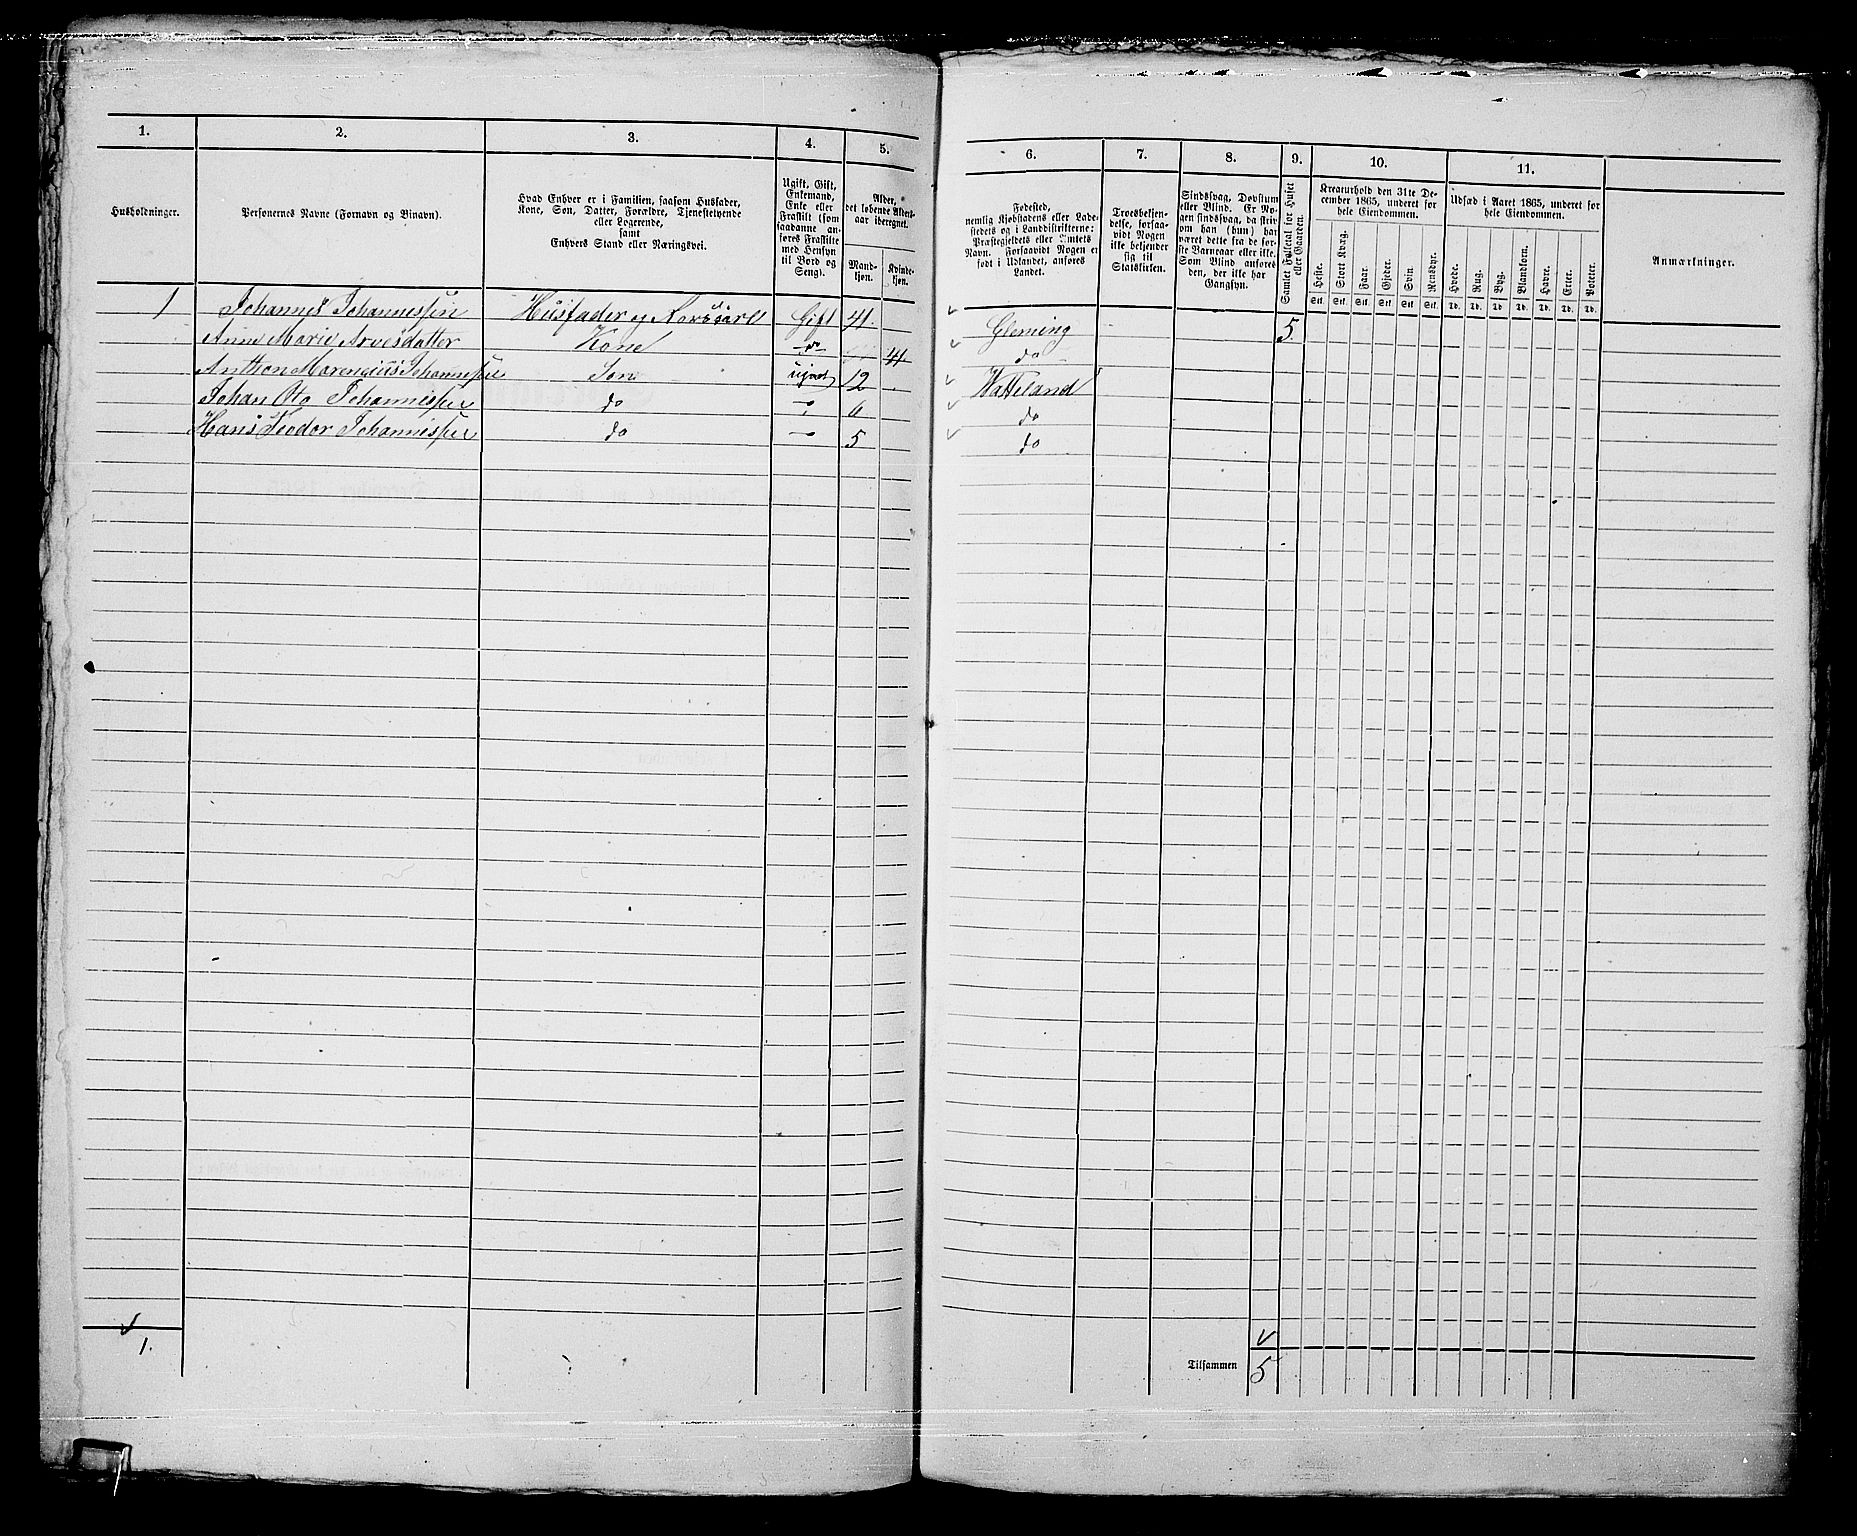 1. 2. 3. 4. 5. 6. 7. 8. 9. 10. 11.
Husholdninger.
Personernes Navne (Fornavn og Binavn).
Hvad Enhver er i Familien, saasom Husfader,
Kone, Søn, Datter, Forældre, Tjenestetyende
eller Logerende,
samt
Enhvers Stand eller Næringsvei.
Ugift, Gift,
Enkemand,
Enke eller
Fraskilt (som
saadanne an-
føres Fraskilte
med Hensyn
til Bord og
Seng).
Alder,
det løbende Alders-
aar iberegnet.
Mand-
kjøn.
Kvinde-
kjøn.
Fødested,
nemlig Kjøbstadens eller Lade-
stedets og i Landdistrikterne:
Præstegjeldets eller Amtets
Navn. Forsaavidt Nogen er
født i Udlandet, anføres
Landet.
Troesbekjen-
delse, forsaa-
vidt Nogen
ikke bekjender
sig til
Statskirken.
Sindssvag, Døvstum
eller Blind. Er No-
gen sindssvag, da skriv
om han (hun) har
været dette fra de før-
ste Barneaar eller ikke.
Som Blind anføres
den, der ikke har
Gangsyn.
Samlet Folketal for Huset
eller Gaarden.
Kreaturhold den 31te De-
cember 1865, underet for
hele Eiendommen.
Heste. Stort Kvæg. Faar. Gjeder. Svin. Rensdyr.
Stk. Stk. Stk. Stk. Stk. Stk.
Udsæd i Aaret 1865, underet for
hele Eiendommen.
Hvede. Rug. Byg. Blandkorn. Havre. Erter. Poteter.
Td. Td. Td. Td. Td. Td. Td.
Anmærkninger.
1 Johannes Johannessen Husfader og Gift 41. Gleming 5.
Anne Marie Arvesdatter Kone do 41 do
Anthon Marencius Johannessen Søn ugivt 12
Johan Oto Johannessen do 6 do
Hans Teodor Johannessen do 5 do
1.
Tilsammen 5